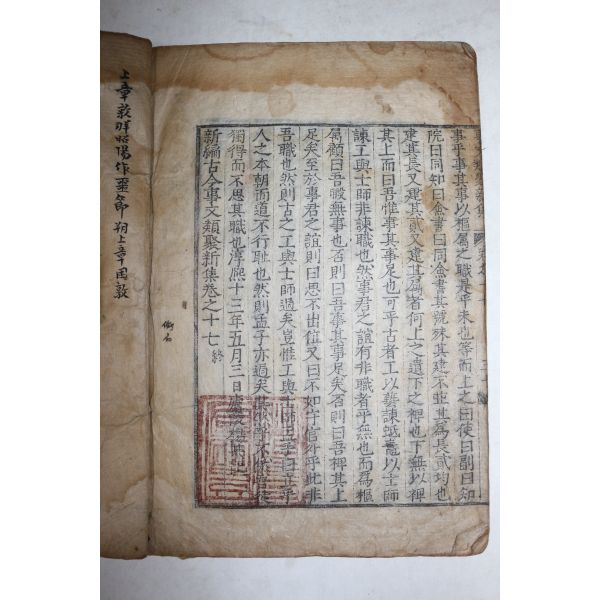 事乎事其事以樞屬之職是乎未也等而上之曰使曰副曰知
院曰同知曰僉書曰同僉書其號殊其建不並其為長貳均也
建其長又建其貳又建其屬者何上之遺下之裨也下無以裨
其上而曰吾惟事其事足也可乎古者工以藝諫蚳鼃以士師
諫工與士師非諫職也然事君之誼有非職者乎無也而為樞
屬顧曰吾殿無事也否則曰吾事其事足矣否則曰吾裨其上
足矣至於事君之誼則曰思不出位又曰不如守官外乎此非
吾職也然則古之工與士師過矣豈惟工與士師孟子曰立乎
人之本朝而道不行耻也然則孟子亦過矣
獨得而不思其職也淳熙十三年五月三日
新編古今事文類聚新集卷之十七 終
上章
昭陽作噩節 朔上章困敦